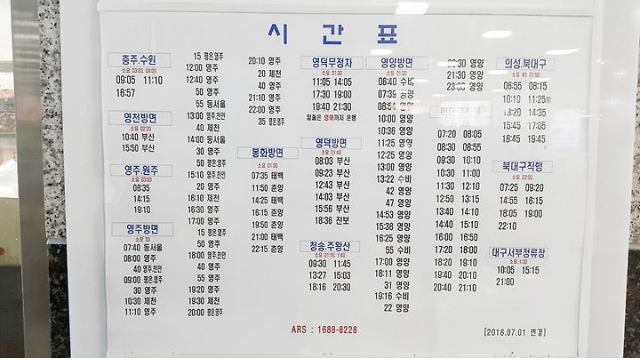 시간표
충주.수원
소요 03:05, 04:00
09:05 11:10
16:57
영천방면
소요 02:20
10:40 부산
15:50 부산
영주.원주
소요 03:00
08:35
14:15
19:10
영주방면
소요 50
07:40 동서울
08:00 영주
40 영주.전안
09:00 평은.영주
30 영주
10:30 제천
11:10 영주
15 평은.영주
12:00 영주
12:40 영주
50 영주
55 동서울
13:00 영주.전안
40 제천
14:00 영주
30 영주
50 평은.영주
15:10 영주.전안
20 제천
16:10 제천
16:30 영주
17:00 영주
15 평은.영주
50 영주
18:00 영주.전안
20 평은.영주
50 영주
19:30 영주
19:30 제천
20:00 평은.영주
20:10 영주
20 제천
40 영주
21:10 영주
22:00 영주
35 평은.영주
봉화방면
소요 01:40
07:35 태백
11:50 춘양
14:25 태백
16:15 춘양
19:50 춘양
21:00 태백
22:15 춘양
영덕무정차
소요 01:00
11:05 14:05
17:30 19:00
19:40 21:30
영덕방면
소요 01:40
08:03 부산
09:23 부산
12:43 부산
14:03 부산
15:56 부산
18:36 진보
청송.주왕산
소요 01:10, 1:40
09:30 11:45
13:27 15:03
18:16 20:30
영양방면
소요 01:30
06:40 수비
07:39 영양
08:54 영양
10:00 영양
10:36 영양
11:25 영양
12:25 영양
13:00 영양
13:22 수비
42 영양
47 영양
14:53 영양
15:38 영양
16:25 영양
55 수비
17:00 영양
18:11 영양
31 영양
19:16 수비
22 영양
20:30 영양
21:30 영양
07:20 08:05
08:30 09:30
10:10 10:30
11:30 12:10
13:40 14:10
16:00 16:50
17:20 18:00
18:20 19:10
19:30 20:10
20:40 21:10
의성.북대구
소요 40, 01:50
06:55 08:15
10:10 11:25
13:20 14:35
15:45 17:05
18:45 19:45
북대구직행
소요 02:00
07:25 09:20
14:55 16:15
18:05 19:00
22:10
대구서부정류장
소요 1:30
10:05 15:15
21:00
ARS : 1688-8228
[2016.07.01 변경]